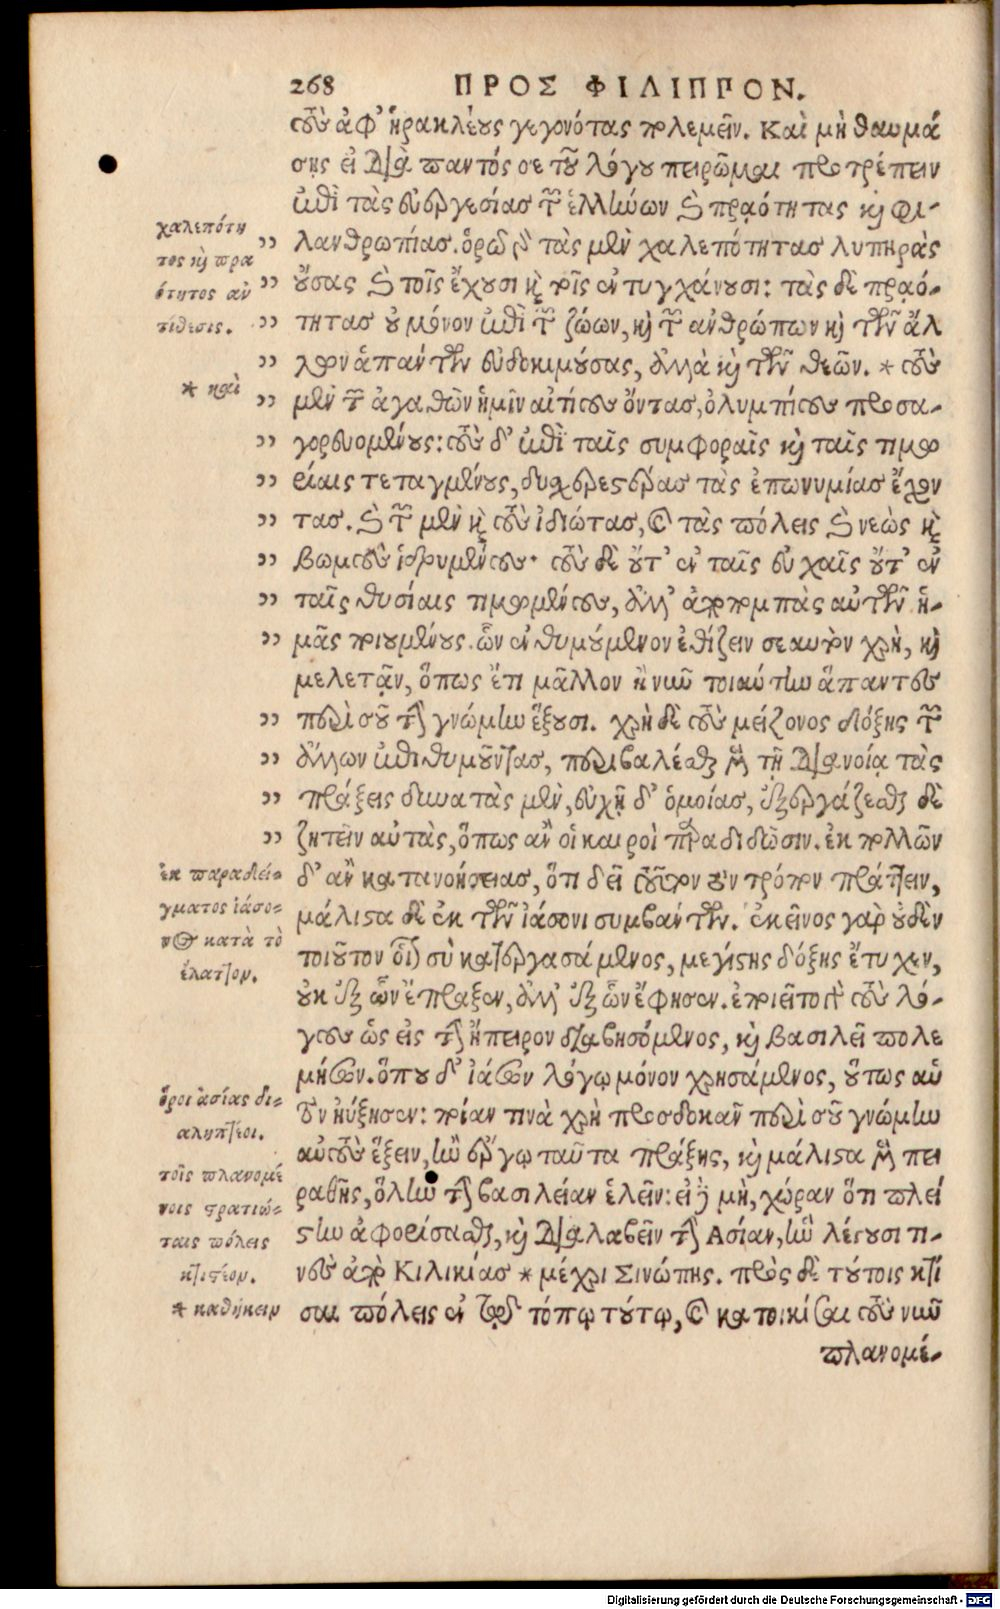 268 ΠΡΟΣ ΦΙΛΙΠΠΟΝ.
τοὺς ἀφ᾽ ἡρακλέους γεγονότας πολεμεῖν. Καὶ μὴ θαυμά
σῃς εἰ διὰ παντός σε τοῦ λόγου πειρῶμαι προτρέπειν
ἐπὶ τὰς εὐεργεσίας τῶν ἑλλήνων καὶ πραότητας καὶ φι-
χαλεπότη
τος καὶ πρα
ότητος ἀν
τίθεσις.
λανθρωπίας. ὁρῶ γὰρ τὰς μὲν χαλεπότητας λυπηρὰς
οὔσας καὶ τοῖς ἔχουσι καὶ τοῖς ἐντυγχάνουσι: τὰς δὲ πραό-
τητας οὐ μόνον ἐπὶ τῶν ζώων, καὶ τῶν ἀνθρώπων καὶ τῶν ἄλ
λων ἁπάντων εὐδοκιμούσας, ἀλλὰ καὶ τῶν θεῶν. * τοὺς
* καὶ
μὲν τῶν ἀγαθῶν ἡμῖν αἰτίους ὄντας, ὀλυμπίους προσα-
γορευομένους: τοὺς δ᾽ ἐπὶ ταῖς συμφοραῖς καὶ ταῖς τιμω
ρίαις τεταγμένους, δυσχερεστέρας τὰς ἐπωνυμίας ἔχον
τας. καὶ τῶν μὲν καὶ τοὺς ἰδιώτας, καὶ τὰς πόλεις καὶ νεὼς καὶ
βωμοὺς ἱδρυμένους· τοὺς δὲ οὔτ᾽ ἐν ταῖς εὐχαῖς οὔτ᾽ ἐν
ταῖς θυσίαις τιμωμένους, ἀλλ᾽ ἀποπομπὰς αὐτῶν ἡ-
μᾶς ποιουμένους. ὧν ἐνθυμούμενον ἐθίζειν σεαυτὸν χρὴ, καὶ
μελετᾷν, ὅπως ἔτι μᾶλλον ἢ νῦν τοιαύτην ἅπαντες
περὶ σοῦ τὴν γνώμην ἕξουσι. χρὴ δὲ τοὺς μείζονος δόξης τῶν
ἄλλων ἐπιθυμοῦντας, περιβαλέσθαι μὲν τῇ διανοίᾳ τὰς
πράξεις δυνατὰς μὲν, εὐχῇ δ᾽ ὁμοίας, ἐξεργάζεσθαι δὲ
ζητεῖν αὐτὰς, ὅπως ἂν οἱ καιροὶ παραδιδῶσιν. ἐκ πολλῶν
ἐκ παραδεί-
γματος ἰάσο-
νος κατὰ τὸ
ἐλάττον.
δ᾽ ἂν κατανοήσειας, ὅτι δεῖ τοῦτον τὸν τρόπον πράττειν,
μάλιστα δὲ ἐκ τῶν ἰάσονι συμβάντων. ἐκεῖνος γὰρ οὐδὲν
τοιοῦτον οἷον σὺ κατεργασάμενος, μεγίστης δόξης ἔτυχεν,
οὐκ ἐξ ὧν ἔπραξεν, ἀλλ᾽ ἐξ ὧν ἔφησεν. ἐποιεῖτο γὰρ τοὺς λό-
γους ὡς εἰς τὴν ἤπειρον διαβησόμενος, καὶ βασιλεῖ πολε
μήσων. ὅπου δ᾽ ἰάσων λόγῳ μόνον χρησάμενος, οὕτως αὑ
ὅροι ἀσίας δι-
αληπτέοι.
τὸν ηὔξησεν: ποίαν τινὰ χρὴ προσδοκᾶν περὶ σοῦ γνώμην
αὐτοὺς ἕξειν, ἢν ἔργῳ ταῦτα πράξῃς, καὶ μάλιστα μὲν πει
τοῖς πλανομέ
νοις στρατιώ-
ταις πόλεις
κτιστέον.
ραθῇς, ὅλην τὴν βασιλείαν ἑλεῖν: εἰ δὲ μὴ, χώραν ὅτι πλεί
στην ἀφορίσασθαι, καὶ διαλαβεῖν τὴν Ἀσίαν, ἣν λέγουσι τι-
νὲς ἀπὸ Κιλικίας * μέχρι Σινώπης. πρὸς δὲ τούτοις κτί
* καθήκειν
σαι πόλεις ἐν τῷδε τόπῳ τούτῳ, καὶ κατοικίσαι τοὺς νῦν
πλανομέ-
Digitalisierung gefördert durch die Deutsche Forschungsgemeinschaft - DFG